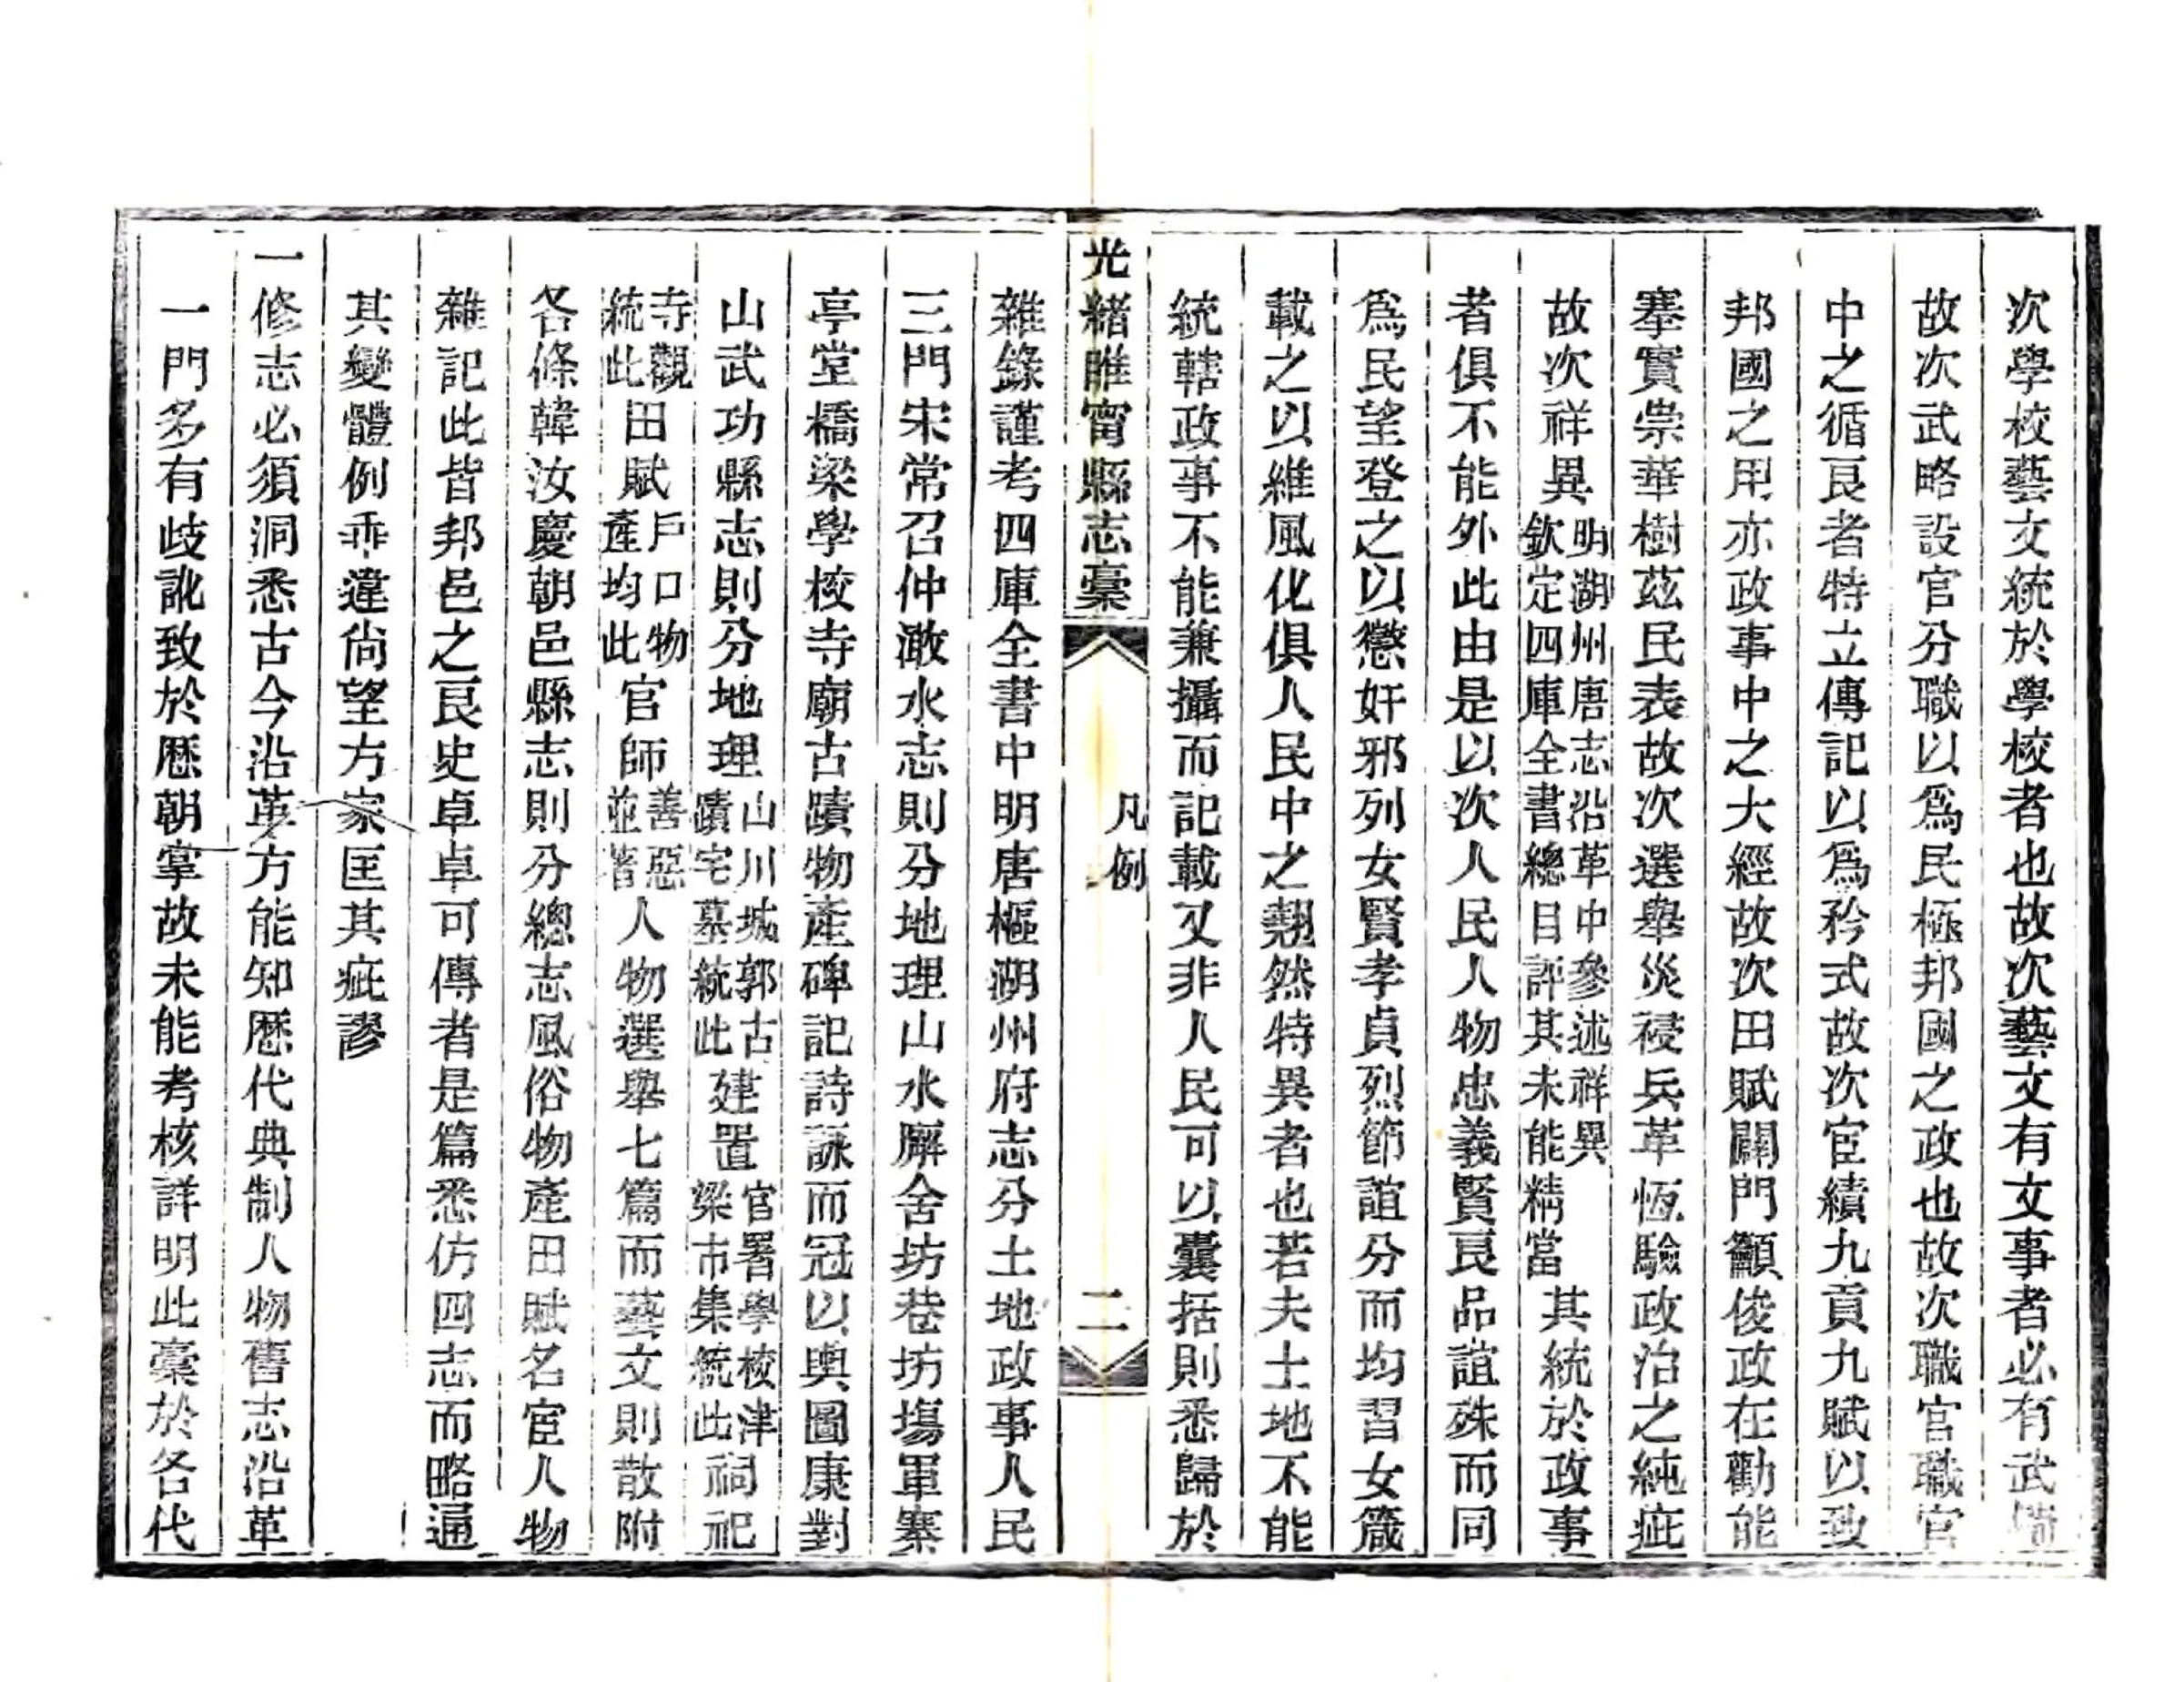 次學校藝文統於學校者也故次藝文有文事者必有武備
故次武略設官分職以爲民極邦國之政也故次職官職官
中之循良者特立傳記以爲矜式故次宦績九貢九賦以致
邦國之用亦政事中之大經故次田賦闢門籲俊政在勸能
搴實祟華樹茲民表故次選舉災祲兵革恆驗政治之純疵
故次祥異明湖州唐志沿革中參述祥異欽定四庫全書總目評其未能精當其統於政事
者俱不能外此由是以次人民人物忠義賢良品誼殊而同
爲民望登之以懲奸邪列女賢孝貞烈節誼分而均習女箴
載之以維風化俱人民中之翹然特異者也若夫土地不能
統轄政事不能兼攝而記載又非人民可以囊括則悉歸於
光緒睢甯縣志稾 凡例 二
雜錄謹考四庫全書中明唐樞湖州府志分土地政事人民
三門宋常召仲澉水志則分地理山水廨舍坊巷坊塲軍寨
亭堂橋梁學校寺廟古蹟物產碑記詩詠而冠以輿圖康對
山武功縣志則分地理山川城郭古蹟宅墓統此建置官署學校津梁市集統此祠祀
寺觀統此田賦戶口物產均此官師善惡並著人物選舉七篇而藝文則散附
各條韓汝慶朝邑縣志則分總志風俗物產田賦名宦人物
雜記此皆邦邑之良史卓卓可傳者是篇悉仿四志而略通
其變體例乖違尙望方家匡其疵謬
一修志必須洞悉古今沿革方能知歷代典制人物舊志沿革
一門多有歧訛致於歷朝掌故未能考核詳明此稾於各代